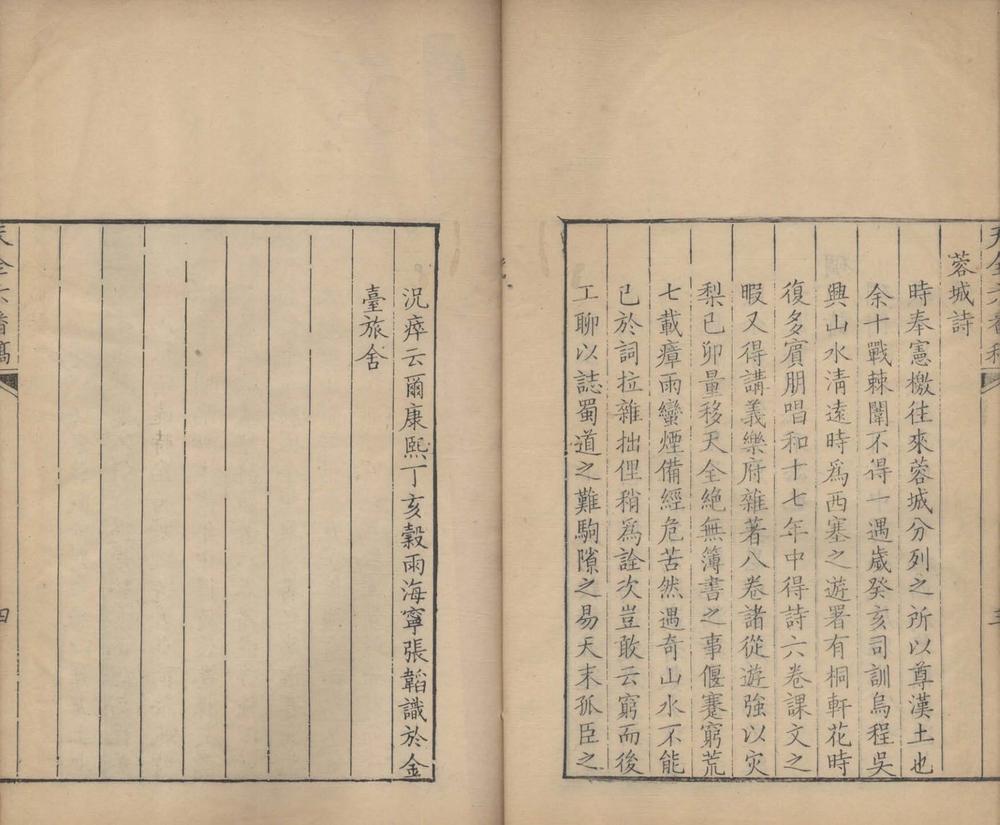 天全六番稿
三
蓉城詩
時奉憲檄往來蓉城分列之所以尊漢土也
余十戰棘闈不得一遇歲癸亥司訓烏程吳
興山水清遠時爲西塞之遊署有桐軒花時
復多賔朋唱和十七年中得詩六卷課文之
暇又得講義樂府雜著八卷諸從遊強以灾
梨己卯量移天全絶無簿書之事偃蹇窮荒
七載瘴雨蠻煙備經危苦然遇奇山水不能
已於詞拉雜拙俚稍爲詮次豈敢云窮而後
工聊以誌蜀道之難駒隙之易天末孤臣之
況瘁云爾康熙丁亥穀雨海寧張韜識於金
臺旅舍
天全六番稿
四